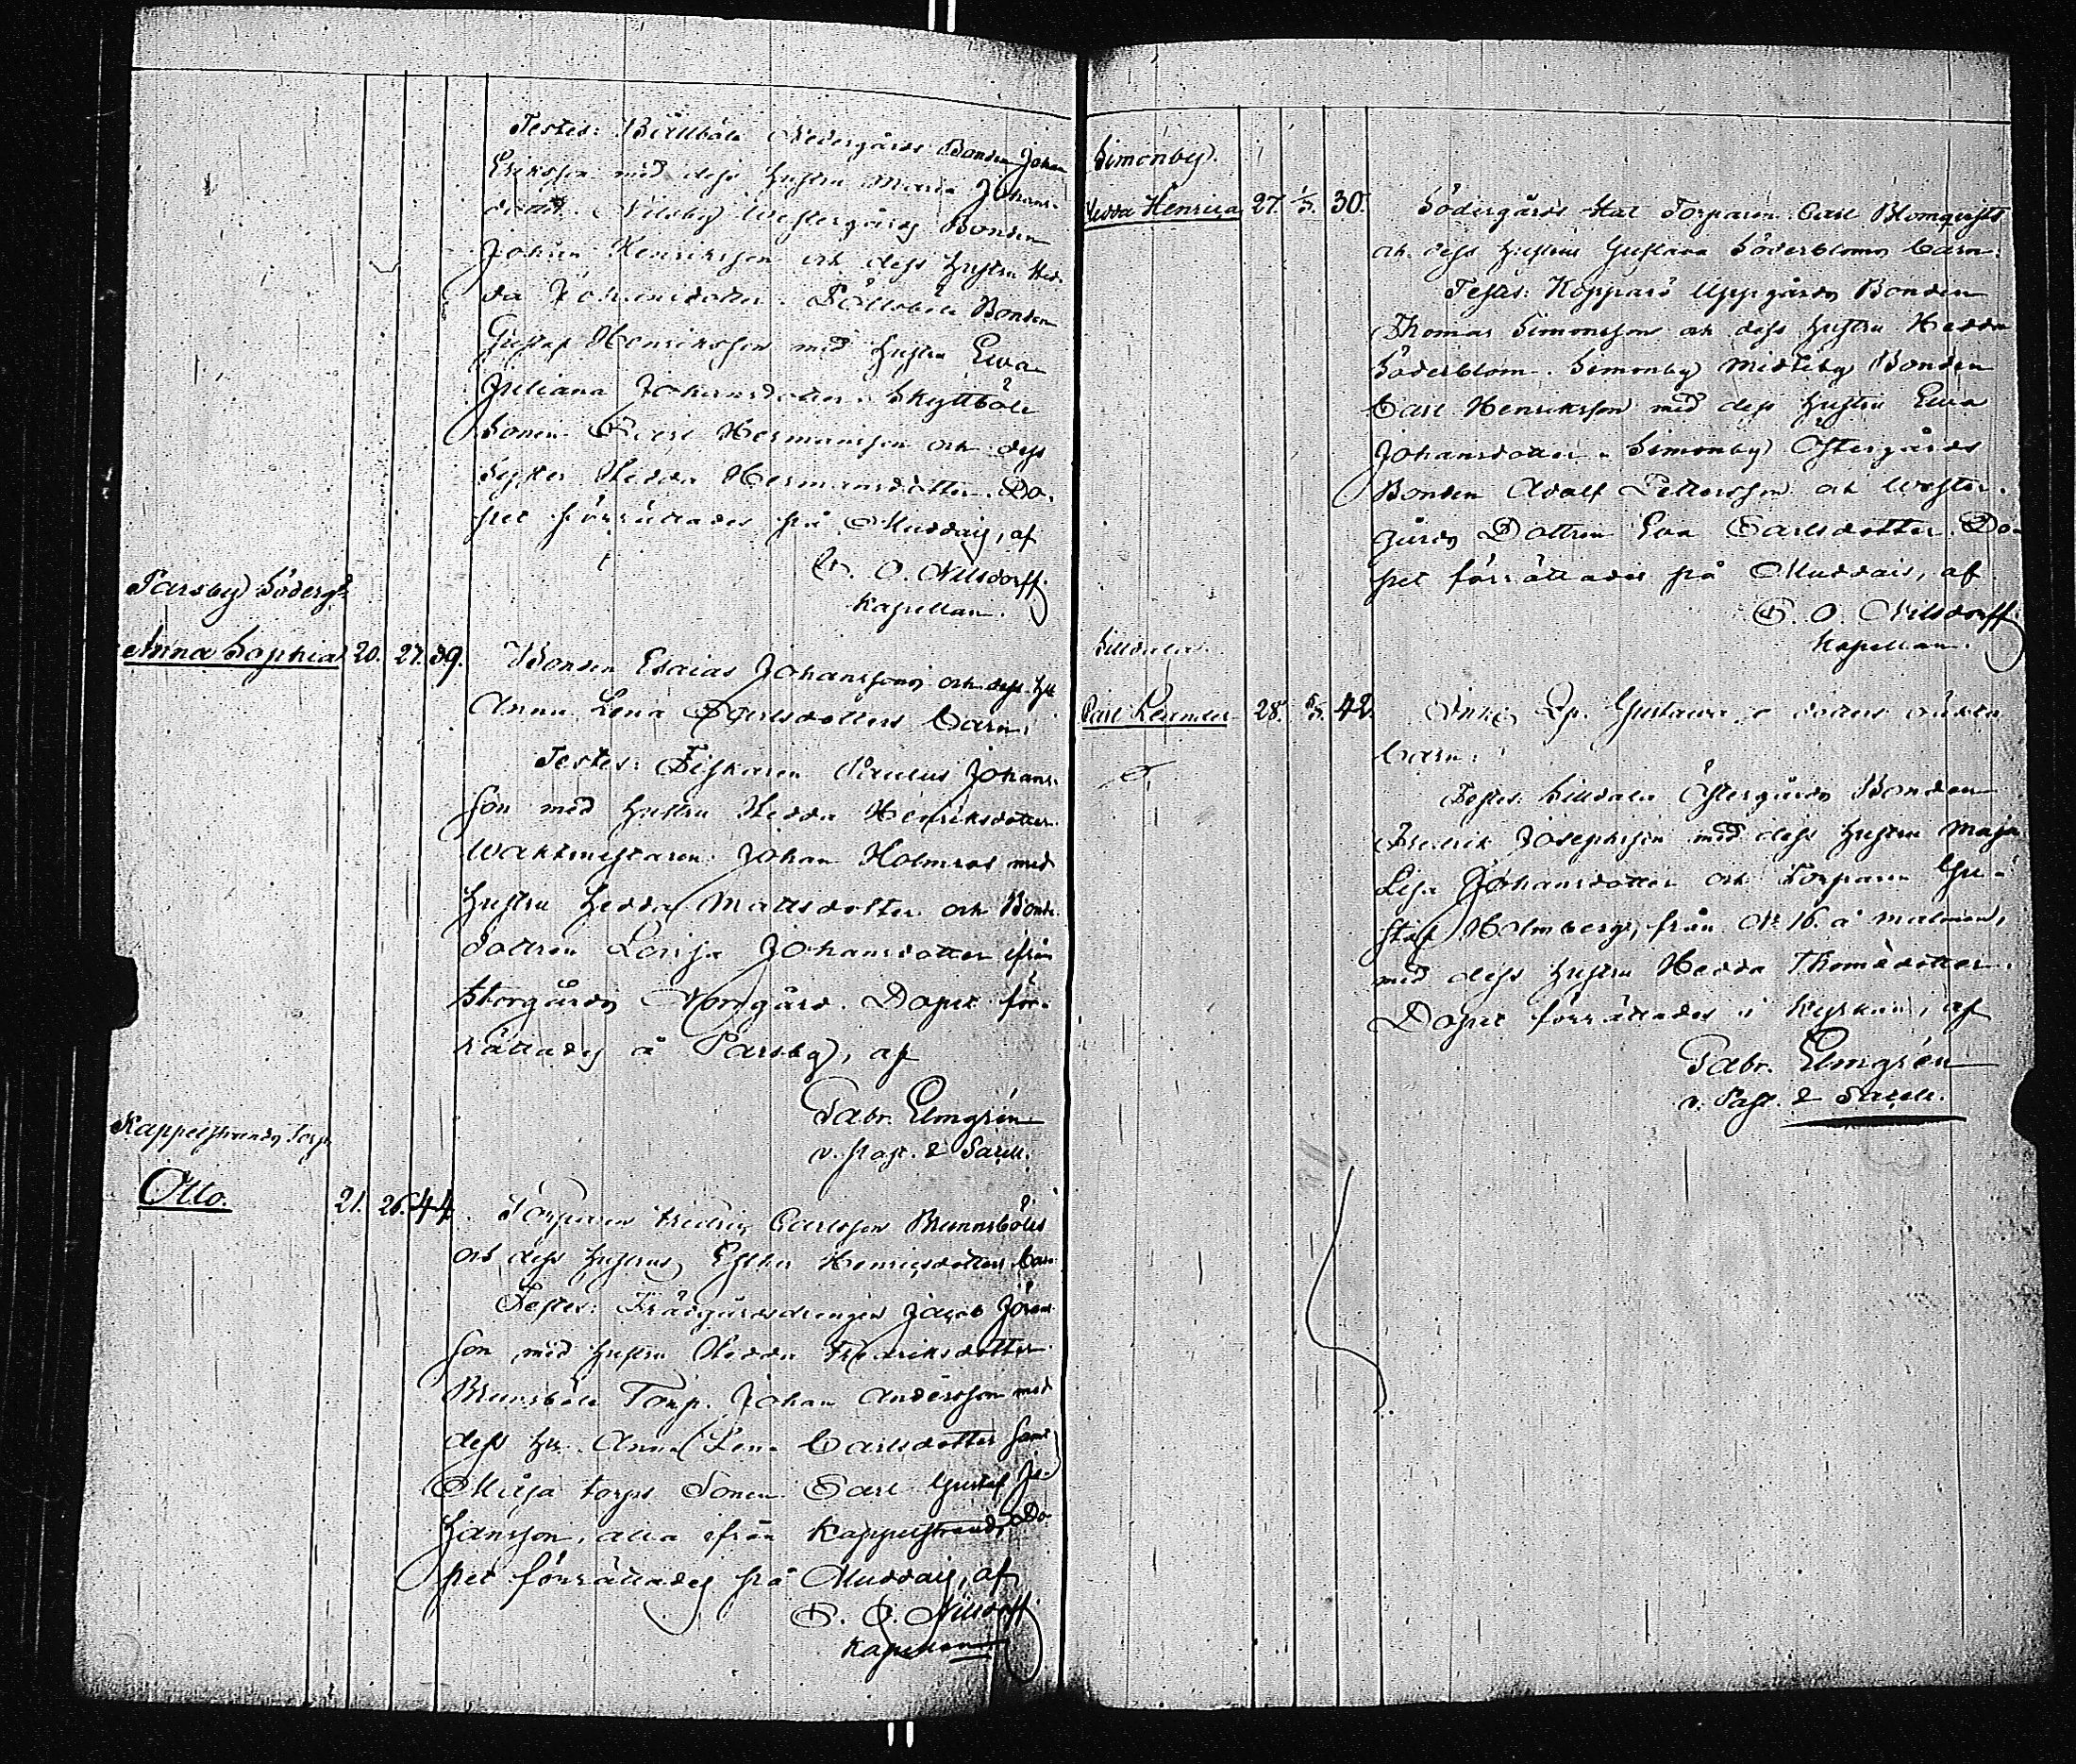 Testes: Bällböle Nedergårds Bonden Johan
Eriksson med dess hustru Maria Johans-
dotter. Nilsby Westergårds Bonden
Johan Henriksson och dess hustru Hed-
da Johansdotter. Bonden
Gustaf Henriksson med hustru Ewa
Juliana Johansdotter. Skyttböle
Sonen Carl Hermansson och dess
syster Hedda Hermansdotter. Do-
pet förrättades på Muddais, af
C. O. Nilsdorff.
Kapellan.
Parsby Söderg.
Anna Sophia 20. 27. 39.
Bonden Esaias Johanssons och dess Hu
Anna Lena Carlsdotters barn.
Testes: Fiskaren Paulus Johans-
son med hustru Hedda Henriksdotter.
Waktmestaren Johan Holmros med
hustru Hedda Mattsdotter och Bonde
dottren Lovisa Johansdotter ifrån
Storgårds Norrgård. Dopet för-
rättades å Parsby, af
Gabr. Elmgrén
v. Past. & Sacell.
Kappelstrands Torp
Otto. 21. 26. 44
Torparen Fredric Carlsson Brunnsböles
och dess hustrus Esther Henricsdotters barn
Testes: Trädgårdsdrengen Jacob Jörans-
son med hustru Hedda Fredriksdotter.
Brunsböle Torp. Johan Andersson med
dess hu Anna Lena Carlsdotter samt
torps Sonen Carl Gustaf Jo-
hansson, alla ifrån Kappelstrand. Do-
pet förrättades på Muddais, af
C. O. Nilsdorff
Kapellan
Simonby.
Hedda Henrica 27. 1/5. 30.
Södergårds Torparen Carl Blomqvists
och dess hustrus Gustava Söderbloms barn.
Testes: Kopparö Uppgårds Bonden
Thomas Simonsson och dess hustru Hedda
Söderblom. Simonby Midteby Bonden
Carl Henriksson med dess hustru Ewa
Johansdotter. Simonby Östergårds
Bonden Adolf Pettersson och Wester-
gårds Dottren Eva Carlsdotter. Do-
pet förrättades på Muddais, af
C. O. Nilsdorff.
Kapellan.
Silldala.
Carl Leander 28. 8/5. 42.
Enk. Gustava dotters oäkta
barn.
Testes: Silldala Östergårds Bonden
Fredrik Josephsson med dess hustru Maja
Lisa Johansdotter och Torparen Gu-
staf Holmberg, från N: 16. å malmen,
med dess hustru Hedda Thomædotter.
Dopet förrättades i kyrkan, af
Gabr. Elmgrén
v. Past. & Sacell.